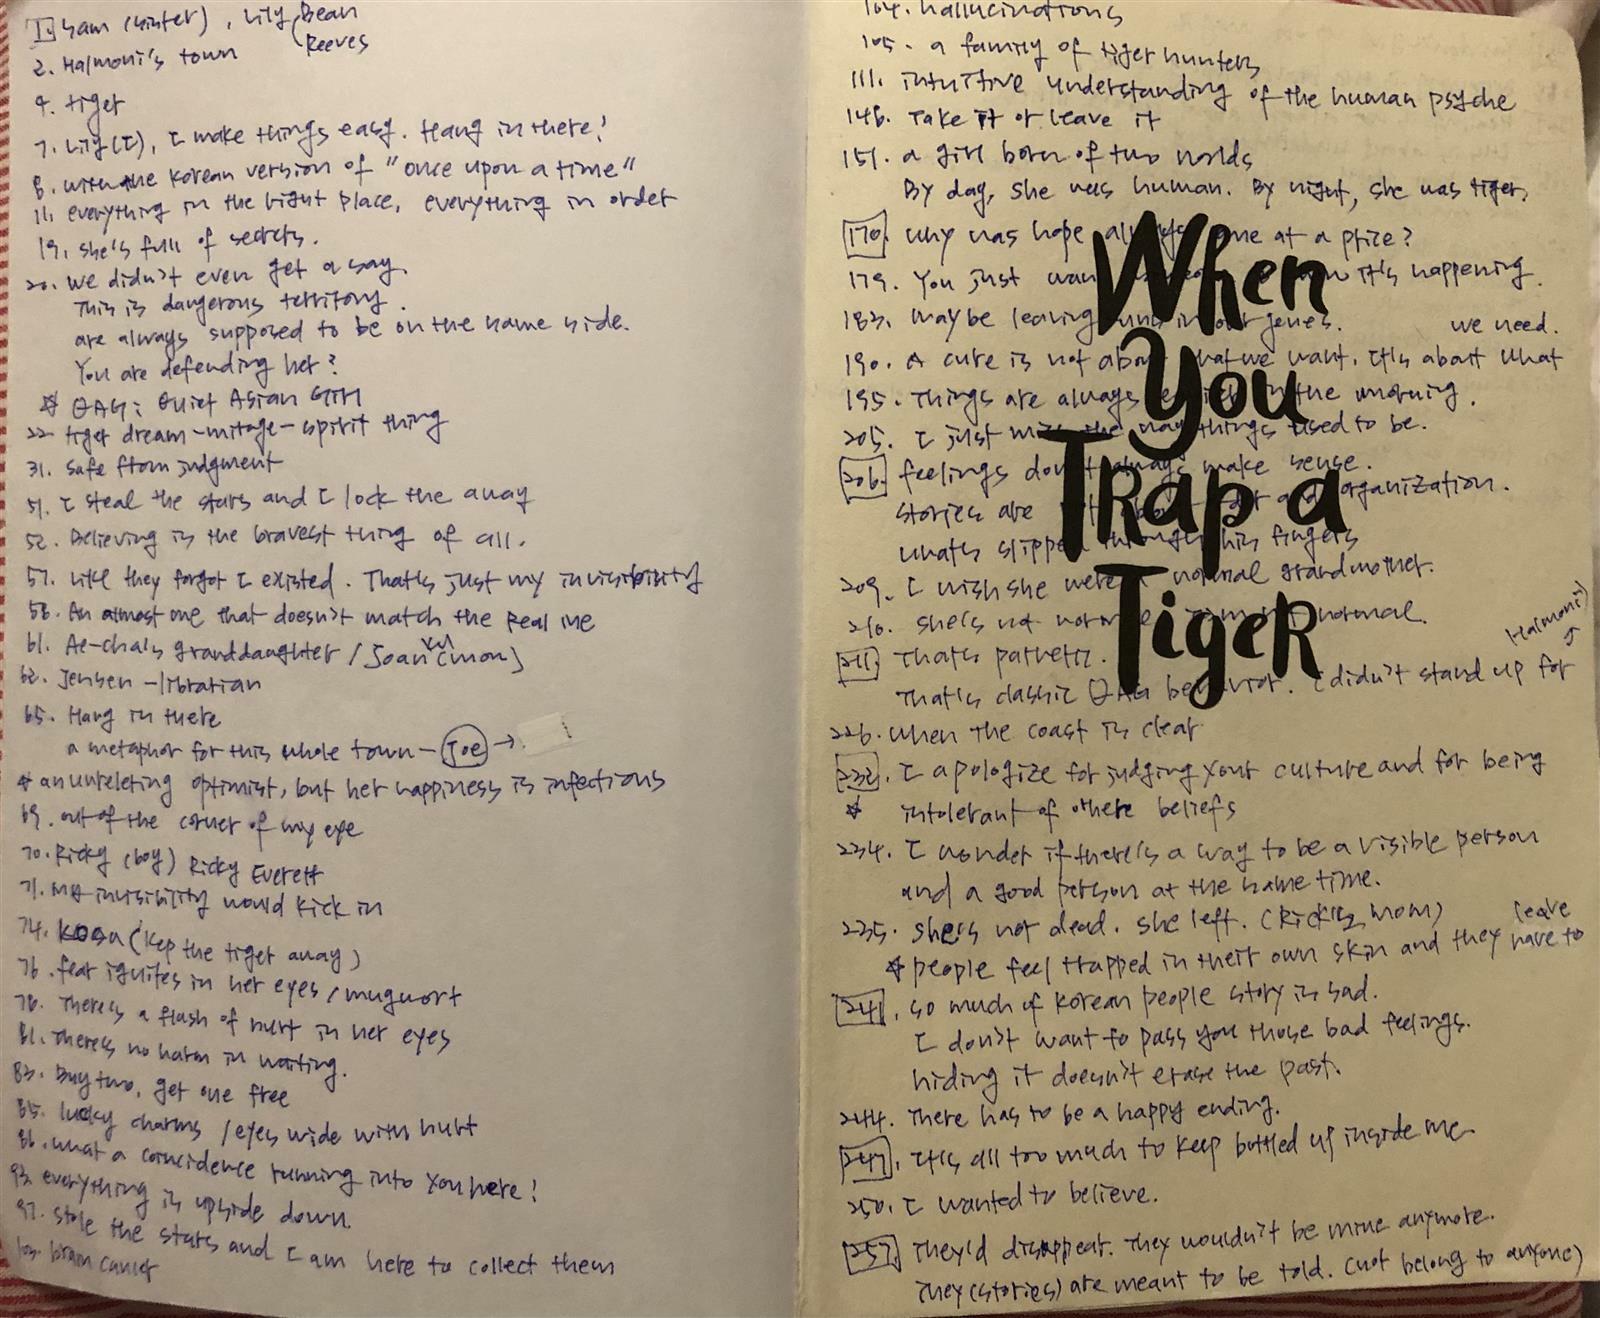 1. Sam (sister), Lily Bean
Reeves
2. Halmoni's town
4. tiger
7. Lily(I), I make things easy. Hang in there!
8. with the Korean version of "once upon a time"
11. everything in the right place, everything in order
19. she's full of secrets.
20. we didn't even get a say.
This is dangerous territory.
are always supposed to be on the same side.
You are defending her?
☆ QAG: Quiet Asian Girl
22. tiger dream-mirage-spirit thing
31. safe from judgment
51. I steal the stars and I lock the away
52. Believing is the bravest thing of all.
57. Like they forgot I existed. That's just my invisibility
58. An almost one that doesn't match the Real me
61. Ae-cha's granddaughter / Joan (mom)
62. Jensen - librarian
65. Hang in there
a metaphor for this whole town - Joe →
☆ an unreleting optimist, but her happiness is infections
69. out of the corner of my eye
70. Ricky (boy) Ricky Everett
71. My invisibility would kick in
74. kosa (kep the tiger away)
76. fear ignites in her eyes / mugwort
78. There's a flash of hurt in her eyes
81. There's no harm in waiting.
83. Buy two, get one free
85. lucky charms / eyes wide with hurt
86. what a coincidence running into you here!
93. everything is upside down.
97. stole the stars and I am here to collect them
103. brain cancer
104. hallucinations
105. a family of tiger hunters
111. intuitive understanding of the human psyche
146. Take it or leave it
151. a girl born of two worlds
By day, she was human. By night, she was tiger.
170. why was hope always at a price?
179. You just it's happening.
183. maybe leaving in our genes.
we need.
190. A cure is not about what we want. It's about what
195. Things are always in the morning.
205. I just miss the way things used to be.
206. feelings don't always make sense.
stories are and organization.
what's slipped through his fingers
209. I wish she were a normal grandmother.
210. she's not normal normal.
Halmoni
211. That's pathetic.
That's classic QAG behavior. I didn't stand up for
226. when the coast is clear
232. I apologize for judging your culture and for being
☆ intolerant of othere beliefs
234. I wonder if there's a way to be a visible person
and a good person at the same time.
235. she's not dead. she left. (Ricky's mom) leave
☆ people feel trapped in their own skin and they have to
241. so much of Korean people story is sad.
I don't want to pass you those bad feelings.
hiding it doesn't erase the past.
244. There has to be a happy ending.
247. It's all too much to keep bottled up inside me
250. I wanted to believe.
257. They'd disappear. They wouldn't be mine anymore.
They (stories) are meant to be told. (not belong to anyone)
When
You
Trap a
Tiger